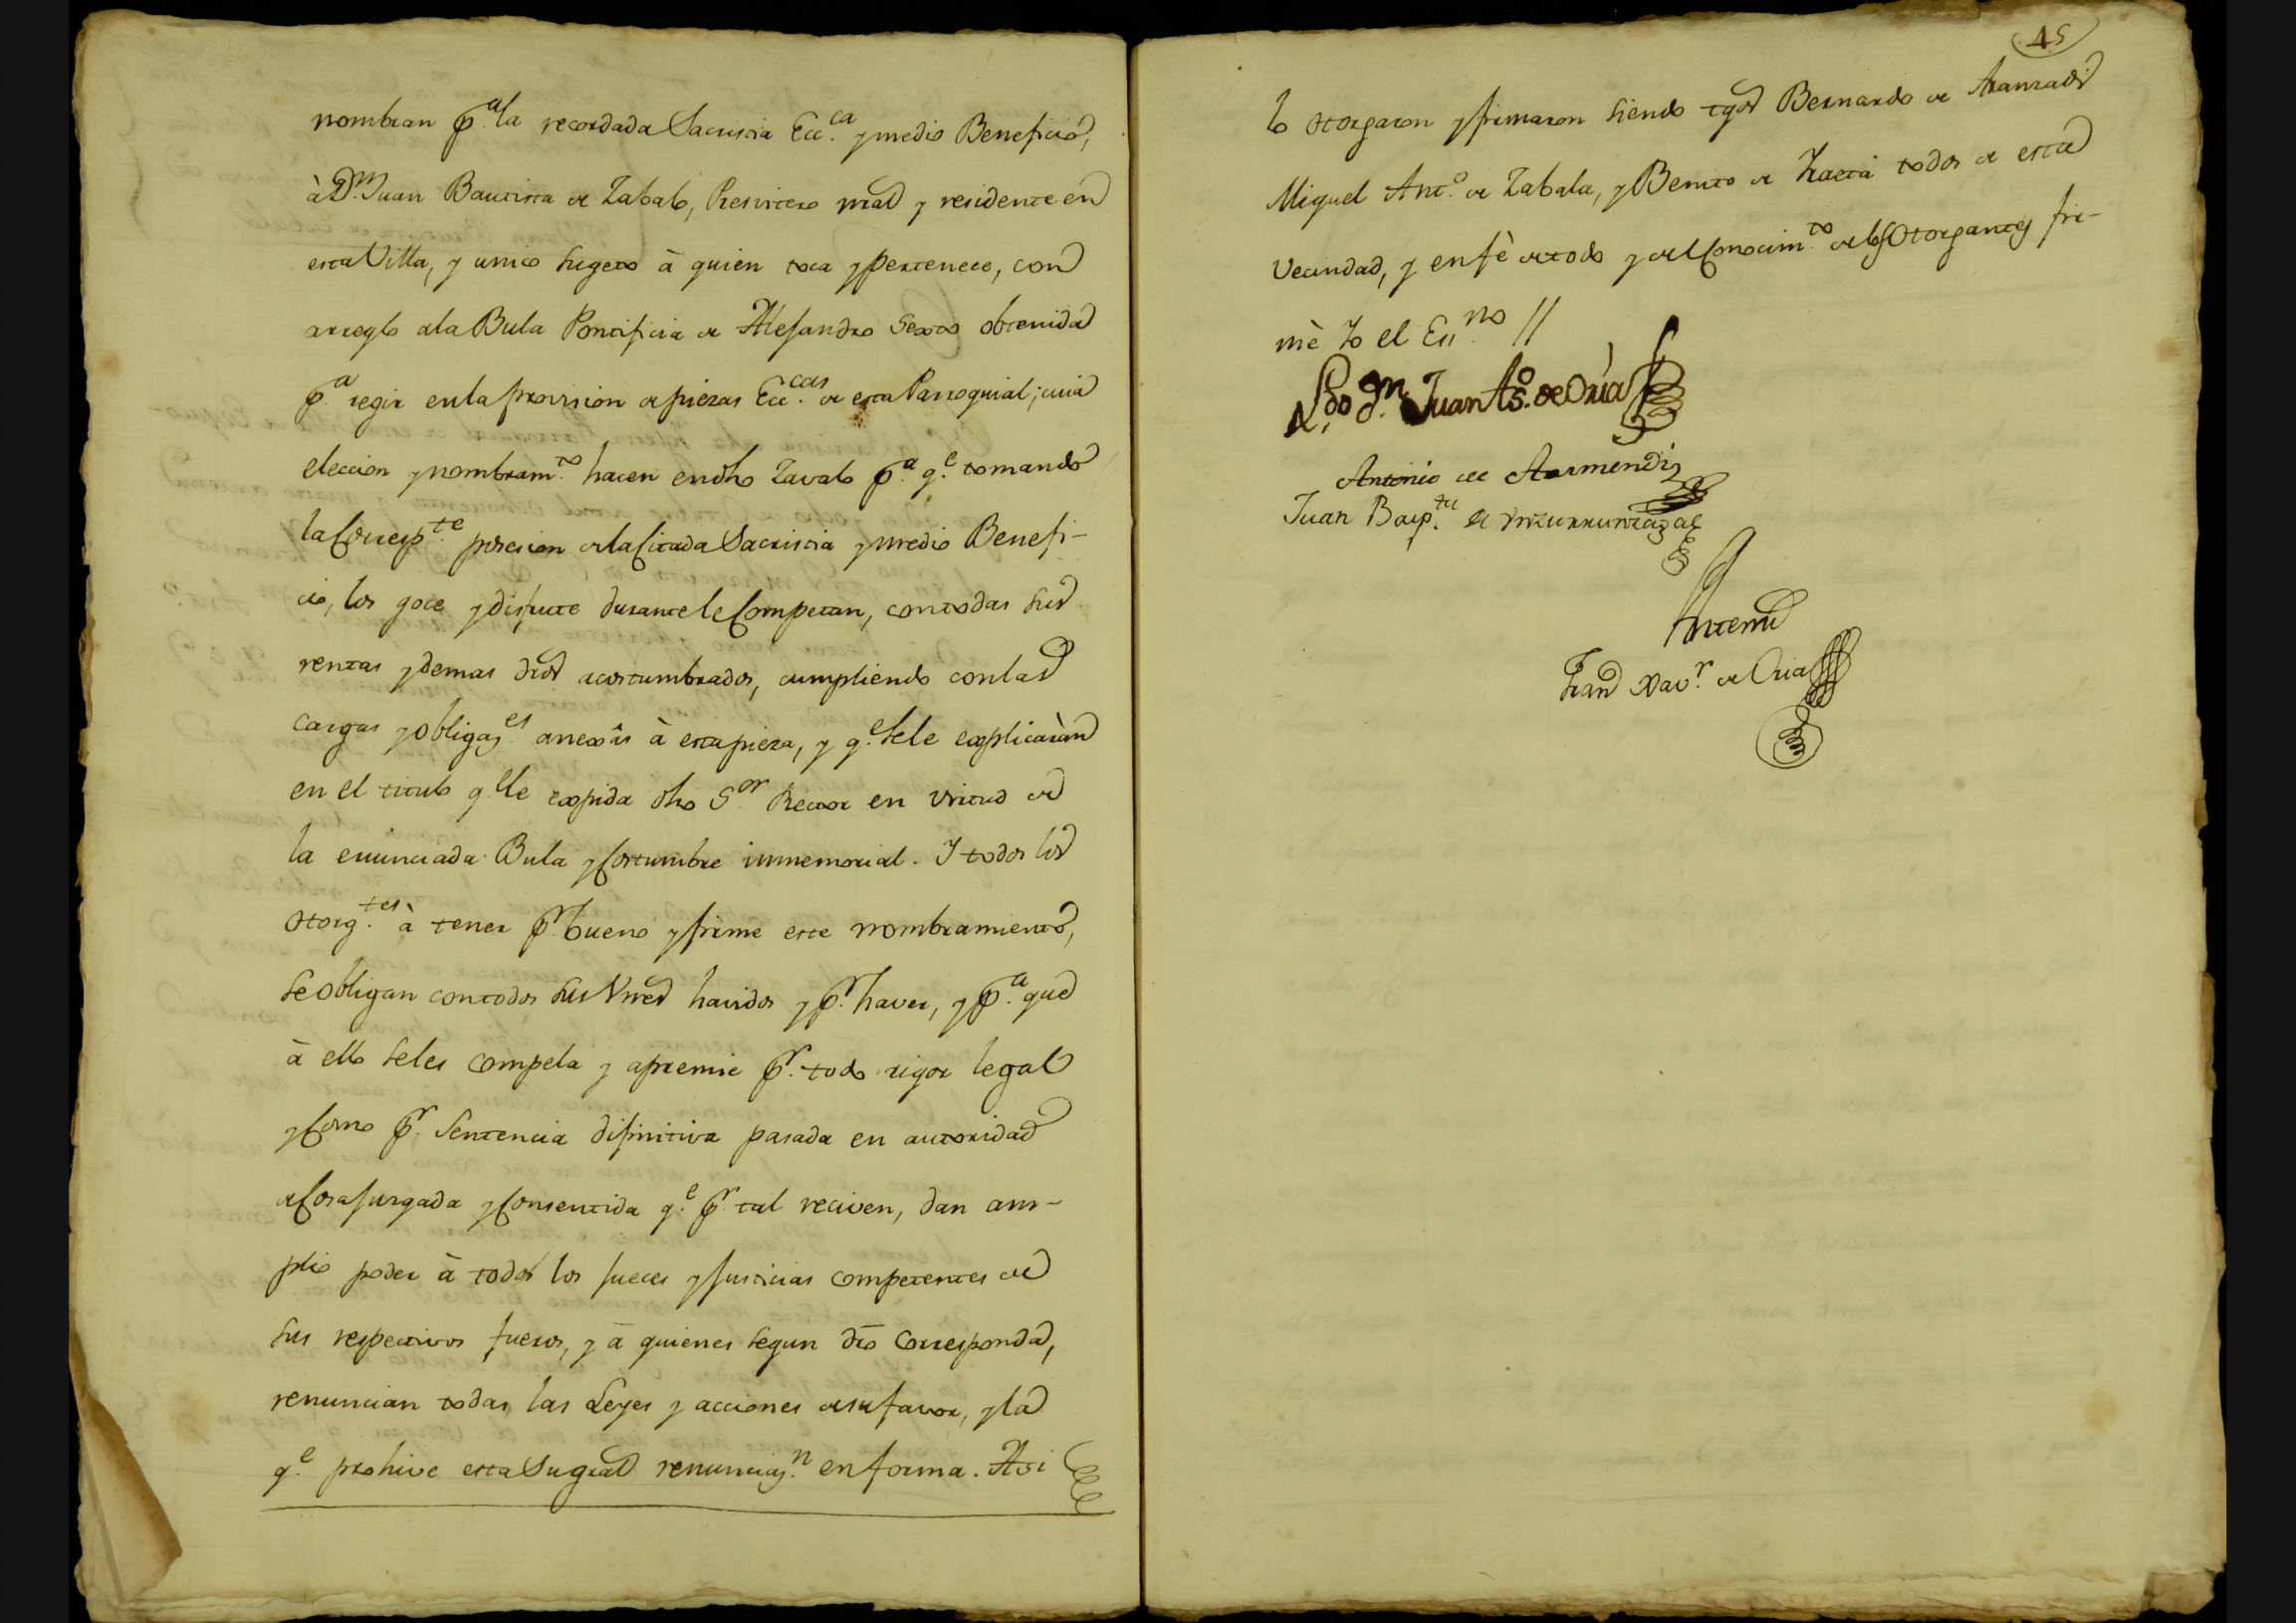 nombran p.ª la recordada Sacristia Ecc.ca y medio Beneficio,
à D.n Juan Bautista de Zabalo, Presvitero nrāl y residente en
esta Villa, y unico sugeto à quien toca y pertenece, con
arreglo ala Bula Pontificia de Alejandro Sexto obtenida
p.ª regir en la provision de piezas Ecc.cas de esta Parroquial; cuia
eleccion y nombram.to hacen en dho Zavalo p.ª q.e tomando
la Corresp.te posesion de la Citada Sacristia y medio Benefi-
cio, los goce y disfrute durante le Competan, con todas sus
rentas y demas dros acostumbrados, cumpliendo con las
cargas y obligaz.es anexâs à esta pieza, y q.e se le explicaràn
en el titulo q.e le expida dho S.or Rector en virtud de
la enunciada Bula y Costumbre inmemorial. Y todos los
otorg.tes à tener p.r bueno y firme este nombramiento,
se obligan con todos sus Vnes havidos y p.r haver, y p.ª que
à ello se les compela y apremie p.r todo rigor legal
y Como p.r Sentencia difinitiva pasada en autoridad
de Cosa juzgada y Consentida q.e p.r tal reciven, dan am-
plio poder à todos los jueces y justicias competentes de
sus respectivos fueros, y à quienes segun dro corresponda,
renuncian todas las Leyes y acciones de su favor, y la
q.e prohive esta Su gral renunciaz.n en forma. Asi
45
lo otorgaron y firmaron siendo tgos Bernardo de Aranzadi
Miguel Ant.o de Zabala, y Benito de Iraeta todos de esta
Vecindad, y en fè de todo y del Conocim.to de los Otorgantes fir-
mè Yo el Ess.no //
L.do D.n Juan As.o de Oria
Antonio de Armendi
Juan Bap.ta de Vnzurrunzaga
Antemi
Fran Xav.r de Oria